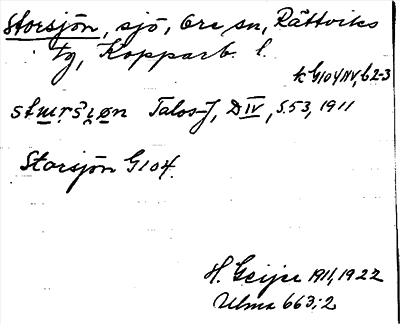 Storsjön, sjö, Ore sn, Rättviks
tg, Kopparb. l.
k G104NV, b2-3
Talos-J, D IV, s. 53, 1911
Storsjön G104.
H. Geijer 1911, 1922
Ulma 663:2